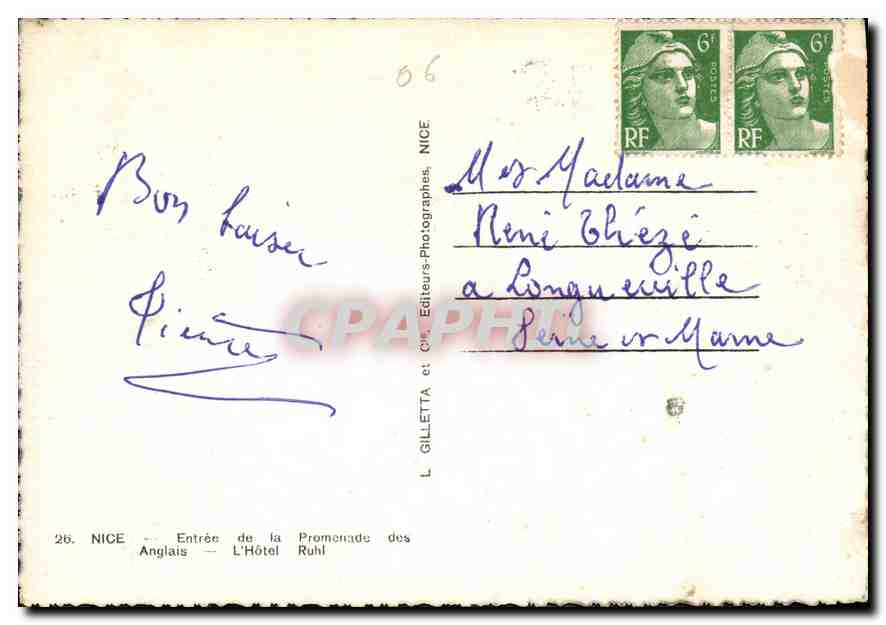 06
6F POSTES RF
6F POSTES RF
Bon baiser
Pierre
Mr et Madame
René Thézé
a Longueville
Seine et Marne
CPAPHIL
L. GILLETTA et Cie, Editeurs-Photographes, NICE
26. NICE — Entrée de la Promenade des
Anglais — L'Hôtel Ruhl